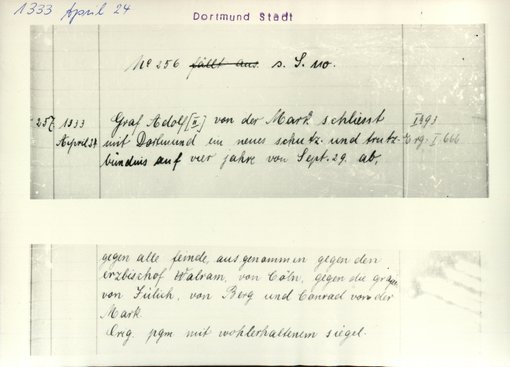 1333 April 24
Dortmund Stadt
No 256 fällt aus. s. S. 110.
257. 1333 Graf Adolf [II] von der Mark schliesst
April 24 mit Dortmund ein neues schutz- und trutz- Urg. I 666
bündnis auf vier jahre von Sept. 29. ab,
gegen alle feinde, ausgenommen gegen den
erzbischof Walram, von Cöln, gegen die grafen
von Jülich, von Berg und Conrad von der
Mark
Orig. pgm mit wohlerhaltenem siegel.